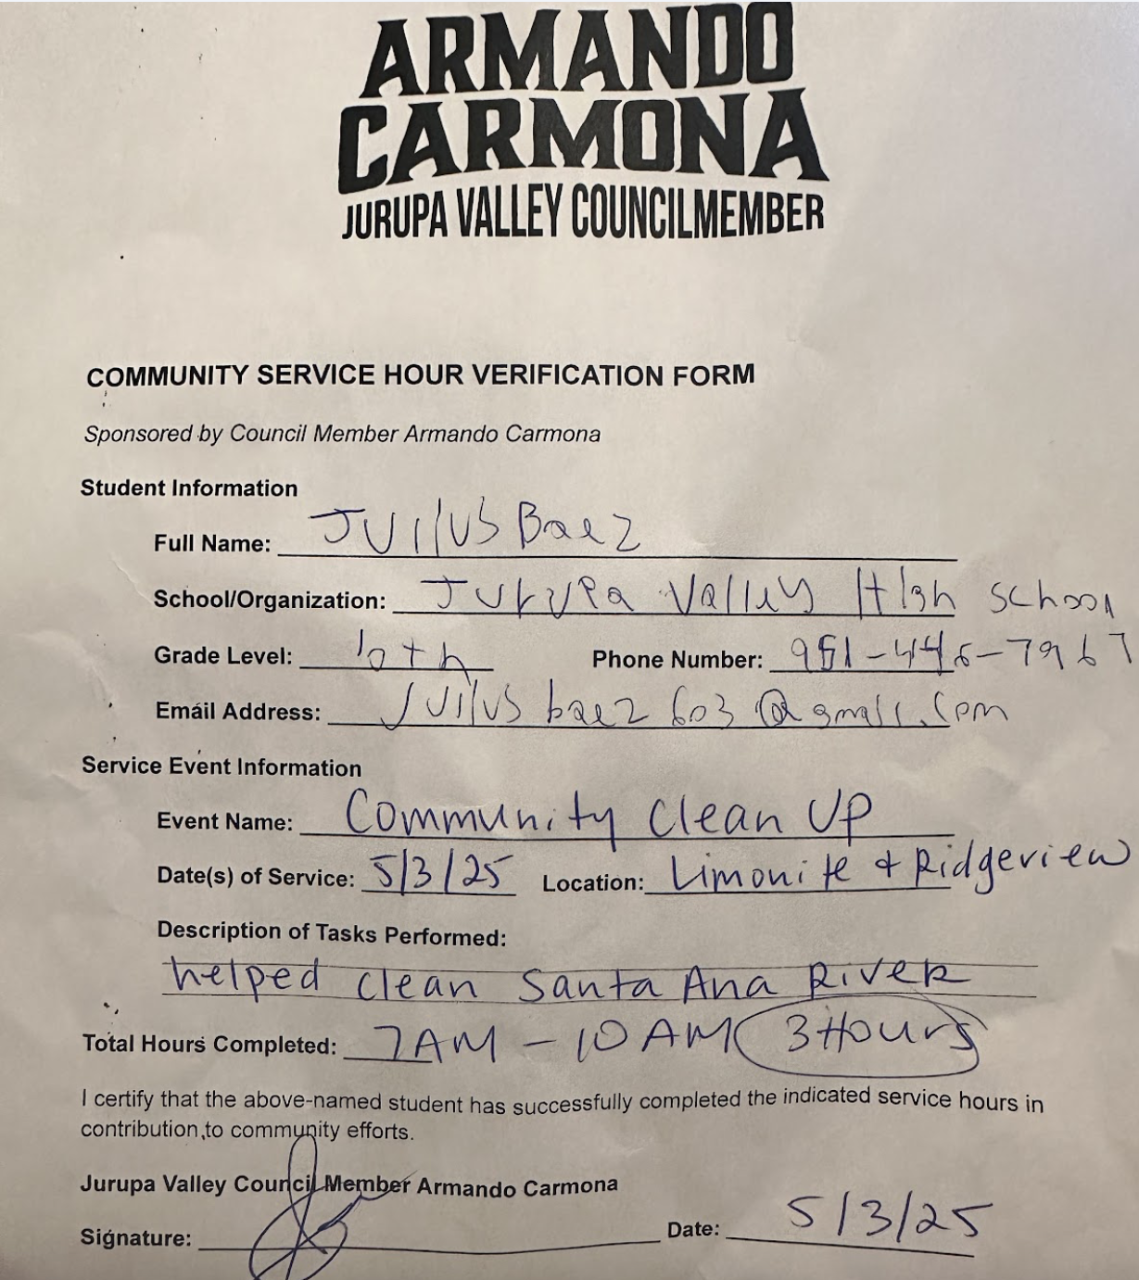 ARMANDO
CARMONA
JURUPA VALLEY COUNCILMEMBER
COMMUNITY SERVICE HOUR VERIFICATION FORM
Sponsored by Council Member Armando Carmona
Student Information
Full Name: Julius Baez
School/Organization: Jurupa Valley High School
Grade Level: 10th Phone Number: 951-446-7967
Email Address: Juliusbaez603@gmail.com
Service Event Information
Event Name: Community Clean Up
Date(s) of Service: 5/3/25 Location: Limonite + Ridgeview
Description of Tasks Performed:
helped clean Santa Ana River
Total Hours Completed: 7AM - 10AM 3 Hours
I certify that the above-named student has successfully completed the indicated service hours in
contribution to community efforts.
Jurupa Valley Council Member Armando Carmona
Signature: Date: 5/3/25